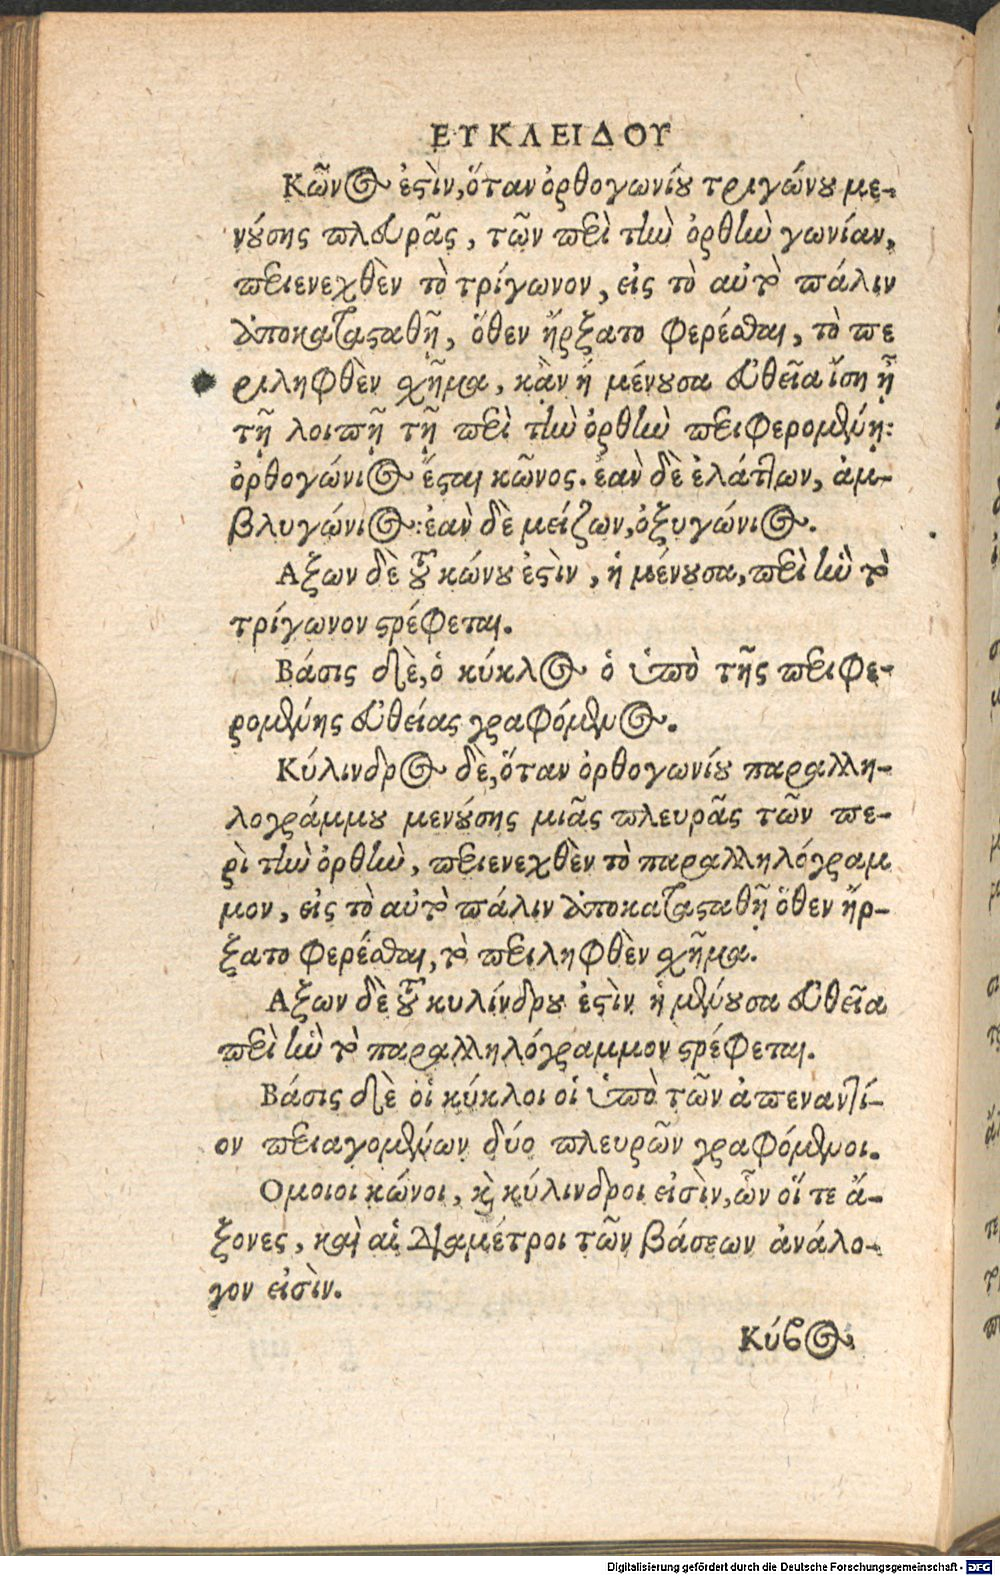 ΕΥΚΛΕΙΔΟΥ
Κῶνος ἐστὶν, ὅταν ὀρθογωνίου τριγώνου με-
νούσης πλευρᾶς, τῶν περὶ τὴν ὀρθὴν γωνίαν,
περιενεχθὲν τὸ τρίγωνον, εἰς τὸ αὐτὸ πάλιν
ἀποκατασταθῇ, ὅθεν ἤρξατο φερέσθαι, τὸ πε
ριληφθὲν σχῆμα, κἂν ἡ μένουσα εὐθεῖα ἴση ᾖ
τῇ λοιπῇ τῇ περὶ τὴν ὀρθὴν περιφερομένῃ:
ὀρθογώνιος ἔσται κῶνος. ἐαὴν δὲ ἐλάττων, ἀμ-
βλυγώνιος: ἐαὴν δὲ μείζων, ὀξυγώνιος.
Αξων δὲ τοῦ κώνου ἐστὶν, ἡ μένουσα, περὶ ἣν τὸ
τρίγωνον στρέφεται.
Βάσις δὲ, ὁ κύκλος ὁ ὑπὸ τῆς περιφε-
ρομένης εὐθείας γραφόμενος.
Κύλινδρος δὲ, ὅταν ὀρθογωνίου παραλλη-
λογράμμου μενούσης μιᾶς πλευρᾶς τῶν πε-
ρὶ τὴν ὀρθὴν, περιενεχθὲν τὸ παραλληλόγραμ
μον, εἰς τὸ αὐτὸ πάλιν ἀποκατασταθῇ ὅθεν ἤρ-
ξατο φερέσθαι, τὸ περιληφθὲν σχῆμα.
Αξων δὲ τοῦ κυλίνδρου ἐστὶν ἡ μένουσα εὐθεῖα
περὶ ἣν τὸ παραλληλόγραμμον στρέφεται.
Βάσις δὲ οἱ κύκλοι οἱ ὑπὸ τῶν ἀπεναντί-
ον περιαγομένων δύο πλευρῶν γραφόμενοι.
Ομοιοι κώνοι, καὶ κύλινδροι εἰσὶν, ὧν οἵ τε ἄ-
ξονες, καὶ αἱ διαμέτροι τῶν βάσεων ἀνάλο-
γον εἰσὶν.
Κύβος
Digitalisierung gefördert durch die Deutsche Forschungsgemeinschaft - DFG